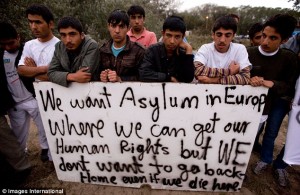 We want Asylum in Europ
where we can get our
Human Rights but WE
dont want to go back
Home even if we die here
© Images International